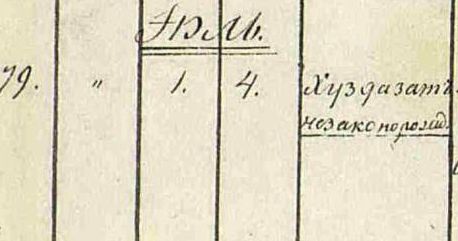 Іюль.
79. „ 1. 4. Хуздазатъ
незаконорожд.